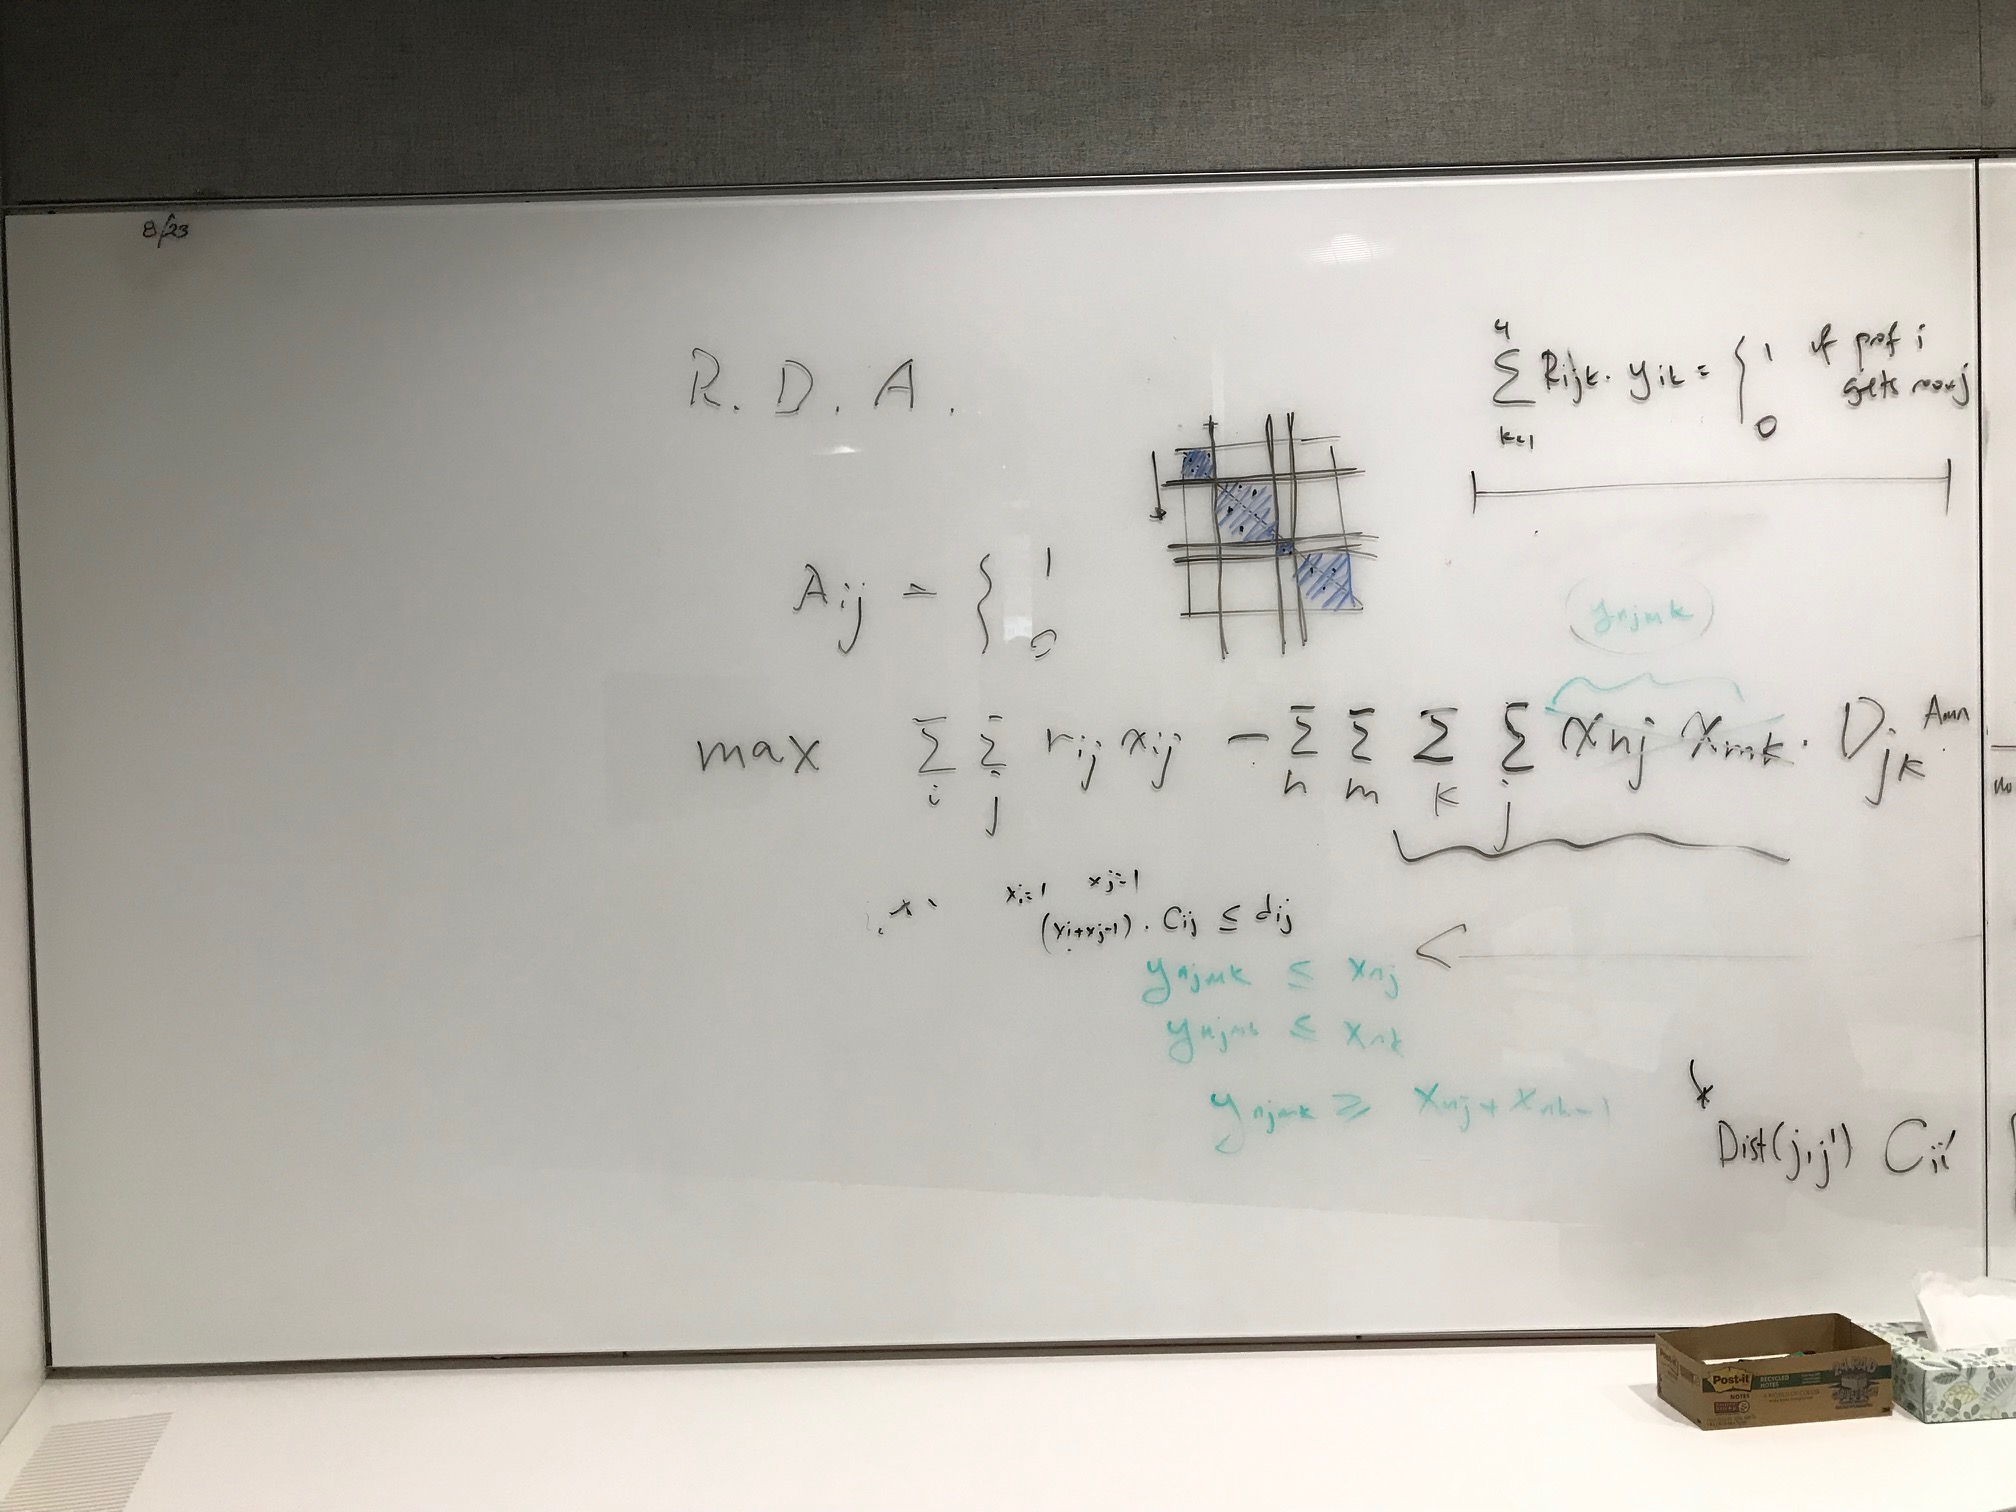 8/23
R. D. A.
4
∑ Rijk · yik = { 1 if prof i
gets room j
k=1 0
Aij = { 1
0
ynjmk
max ∑ ∑ rij xij - ∑ ∑ ∑ ∑ xnj xmk · Djk Amn
i j n m k j
xi=1 xj=1
(xi+xj-1) · Cij ≤ dij
ynjmk ≤ xnj
ynjmk ≤ xnk
ynjmk ≥ xnj + xnk-1
Dist(j,j') Cii'
Post-it
NOTES
RECYCLED
NOTES